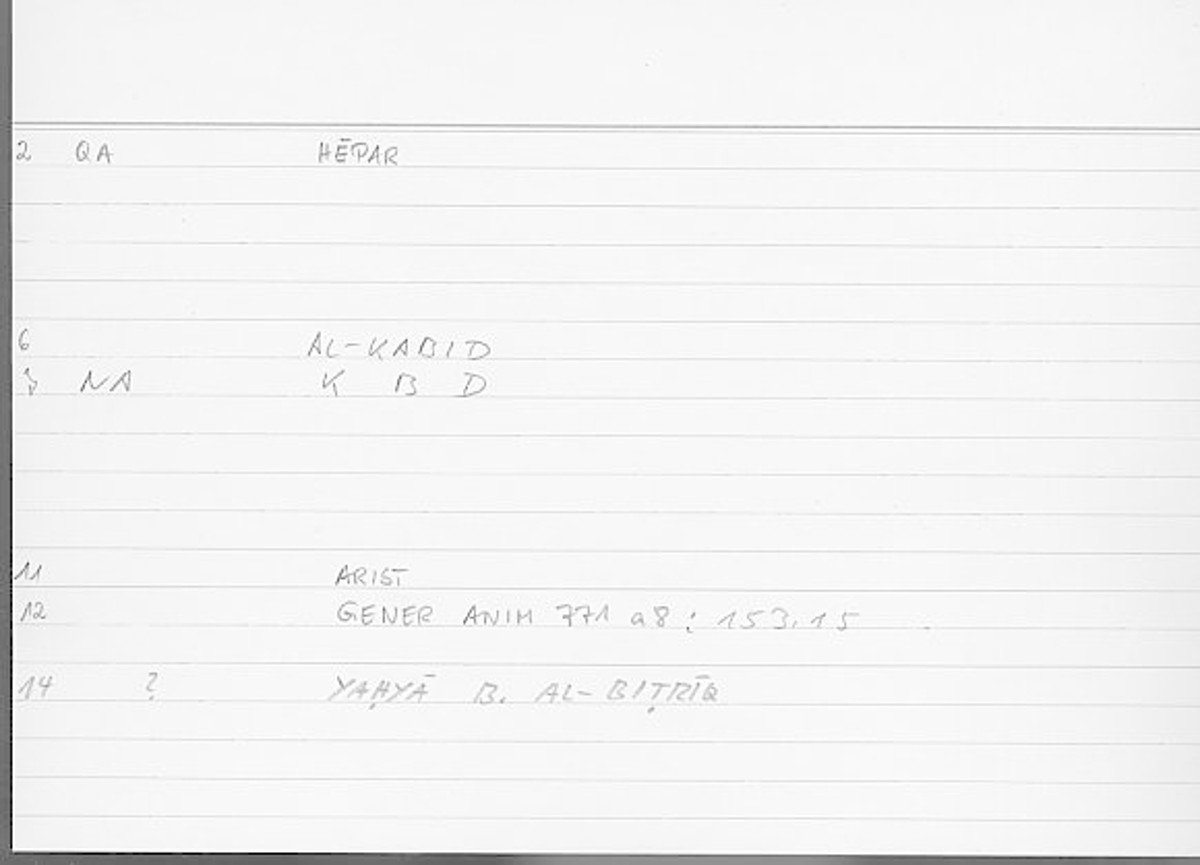 2 QA HĒPAR
6 AL-KABID
NA K B D
11 ARIST
12 GENER ANIM 771 a8 : 153,15
14 ? YAḤYĀ B. AL-BIṬRĪQ